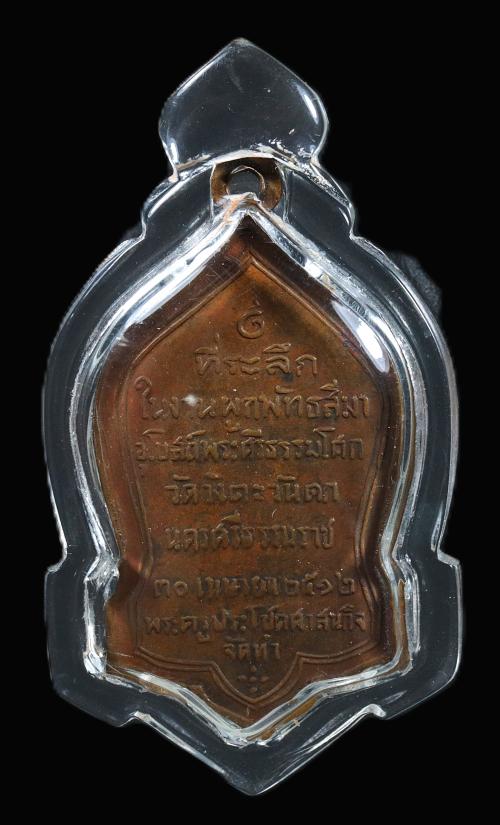 ที่ระลึก
ในงานผูกพัทธสีมา
อุโบสถ์พระศรีธรรมโศก
วัดวันตะวันตก
นครศรีธรรมราช
๓๐ เมษา ๒๕๑๒
พระครูประโชติศาสนกิจ
จัดทำ